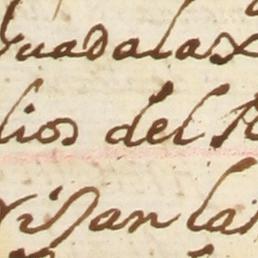 Guadalax
lios del R
Visan la